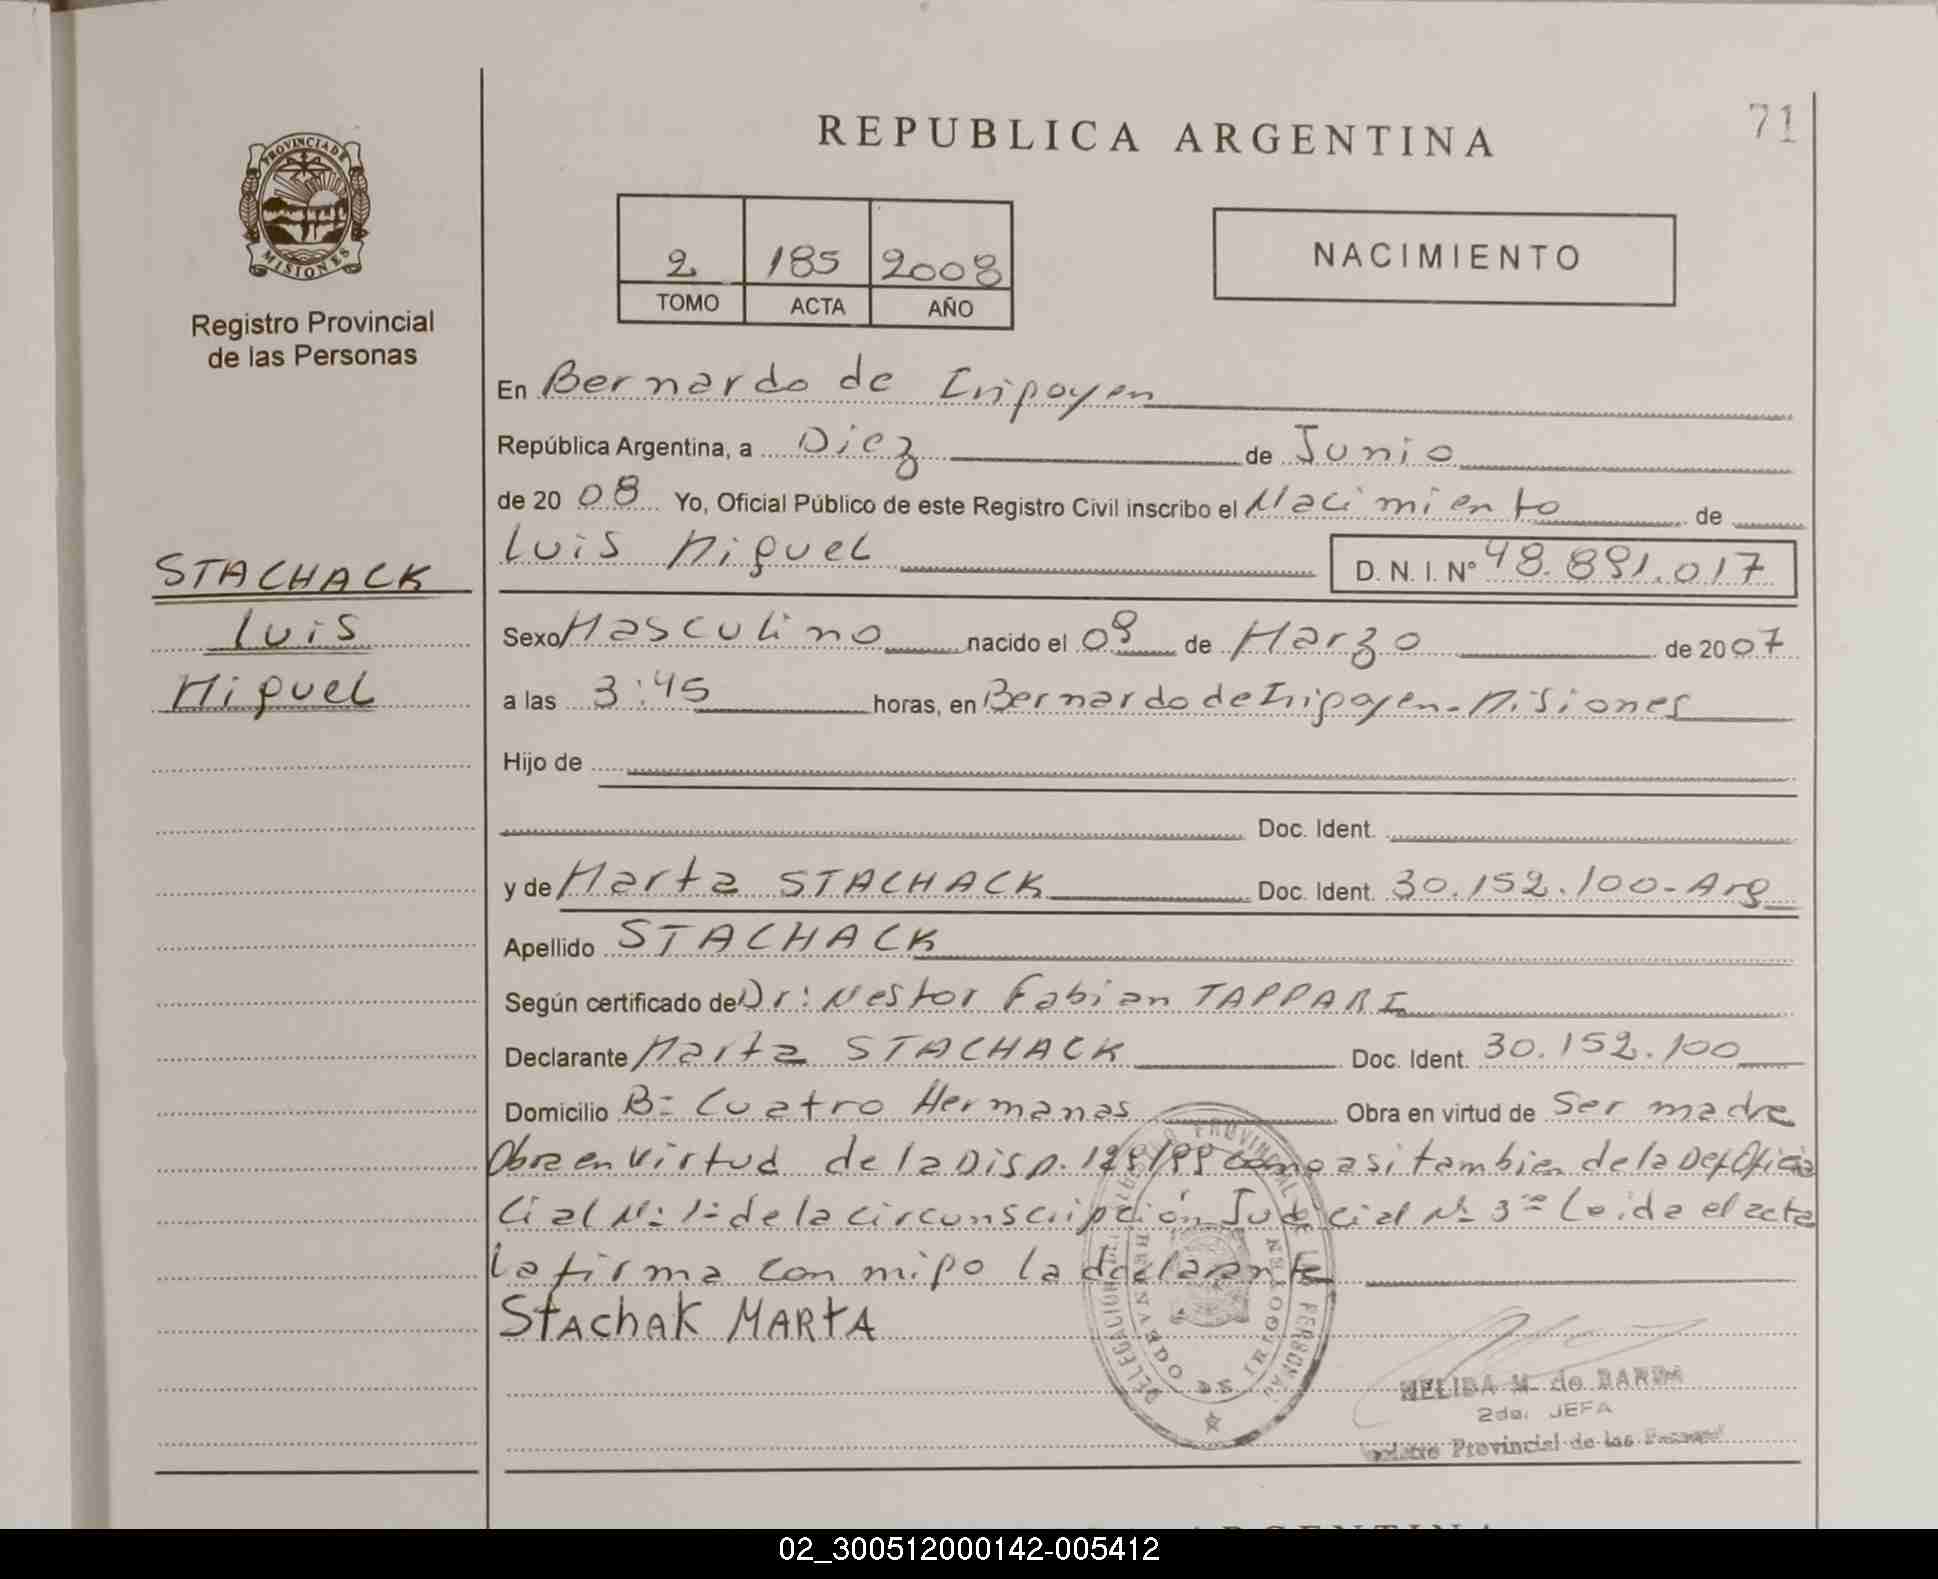 REPUBLICA ARGENTINA
71
PROVINCIA DE
MISIONES
Registro Provincial
de las Personas
2 185 2008
TOMO ACTA AÑO
NACIMIENTO
En Bernardo de Iripoyen
República Argentina, a Diez de Junio
de 20 08 Yo, Oficial Público de este Registro Civil inscribo el Nacimiento de
Luis Miguel D. N. I. Nº 48.891.017
STACHACK
Luis
Miguel
Sexo Masculino nacido el 09 de Marzo de 2007
a las 3:45 horas, en Bernardo de Iripoyen - Misiones
Hijo de
Doc. Ident.
y de Marta STACHACK Doc. Ident. 30.152.100 - Arg
Apellido STACHACK
Según certificado de Dr: Nestor Fabian TAPPARI
Declarante Marta STACHACK Doc. Ident. 30.152.100
Domicilio B= Cuatro Hermanas Obra en virtud de Ser madre
Obra en virtud de la Disp. como asi tambien de la Def
cial Nº 1º de la circunscripción Judicial Nº 3ra Leida el acta
la firma con migo la declarante
Stachak MARTA
DE LAS PERSONAS
BERNARDO DE IRIGOYEN
NELIDA M. de BARDA
2da. JEFA
Provincial de las
ARGENTINA
02_300512000142-005412